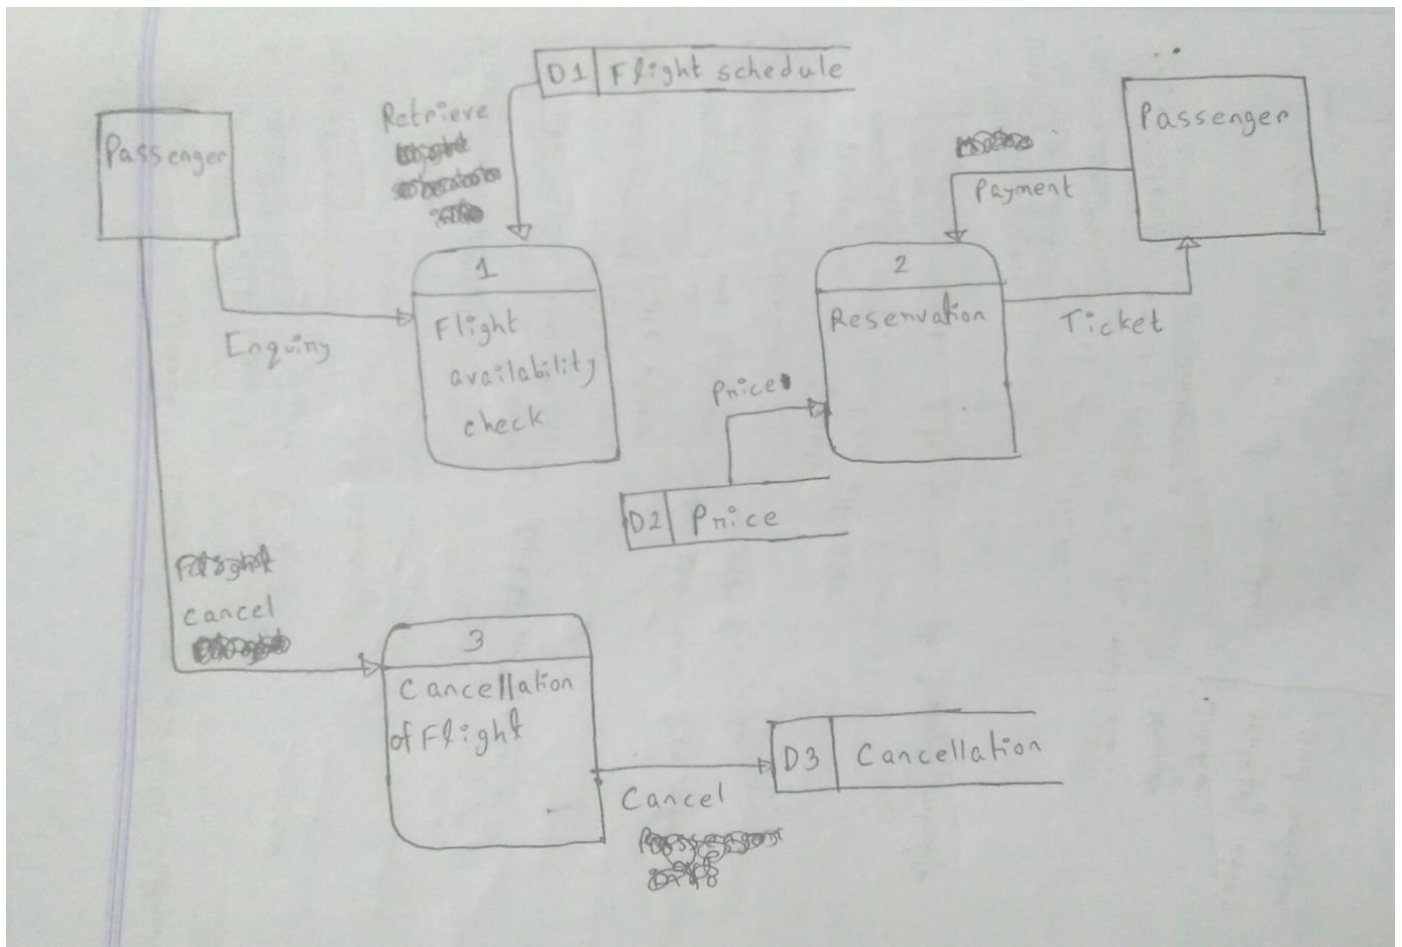 D1 Flight schedule
Retrieve
Passenger
Passenger
Payment
1
Flight
availability
check
Enquiry
2
Reservation
Ticket
Price
D2 Price
Cancel
3
Cancellation
of Flight
D3 Cancellation
Cancel